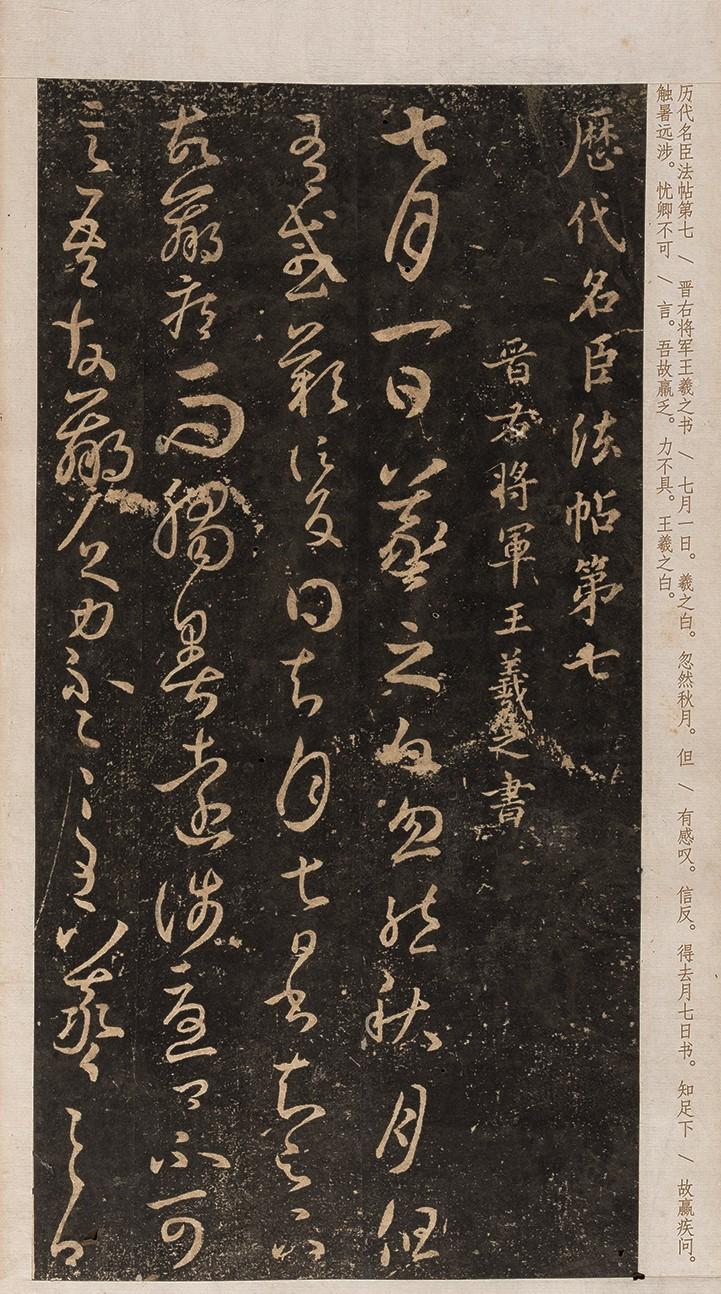 历代名臣法帖第七 \ 晋右将军王羲之书 \ 七月一日。羲之白。忽然秋月。但 \ 有感叹。信反。得去月七日书。知足下 \ 故羸疾问。
触暑远涉。忧卿不可 \ 言。吾故羸乏。力不具。王羲之白。
歷代名臣法帖第七
晋右将軍王羲之書
七月一日羲之白忽然秋月但
有感歎信反得去月七日書知足下
故羸疾問觸暑遠涉憂卿不可
言吾故羸乏力不具王羲之白